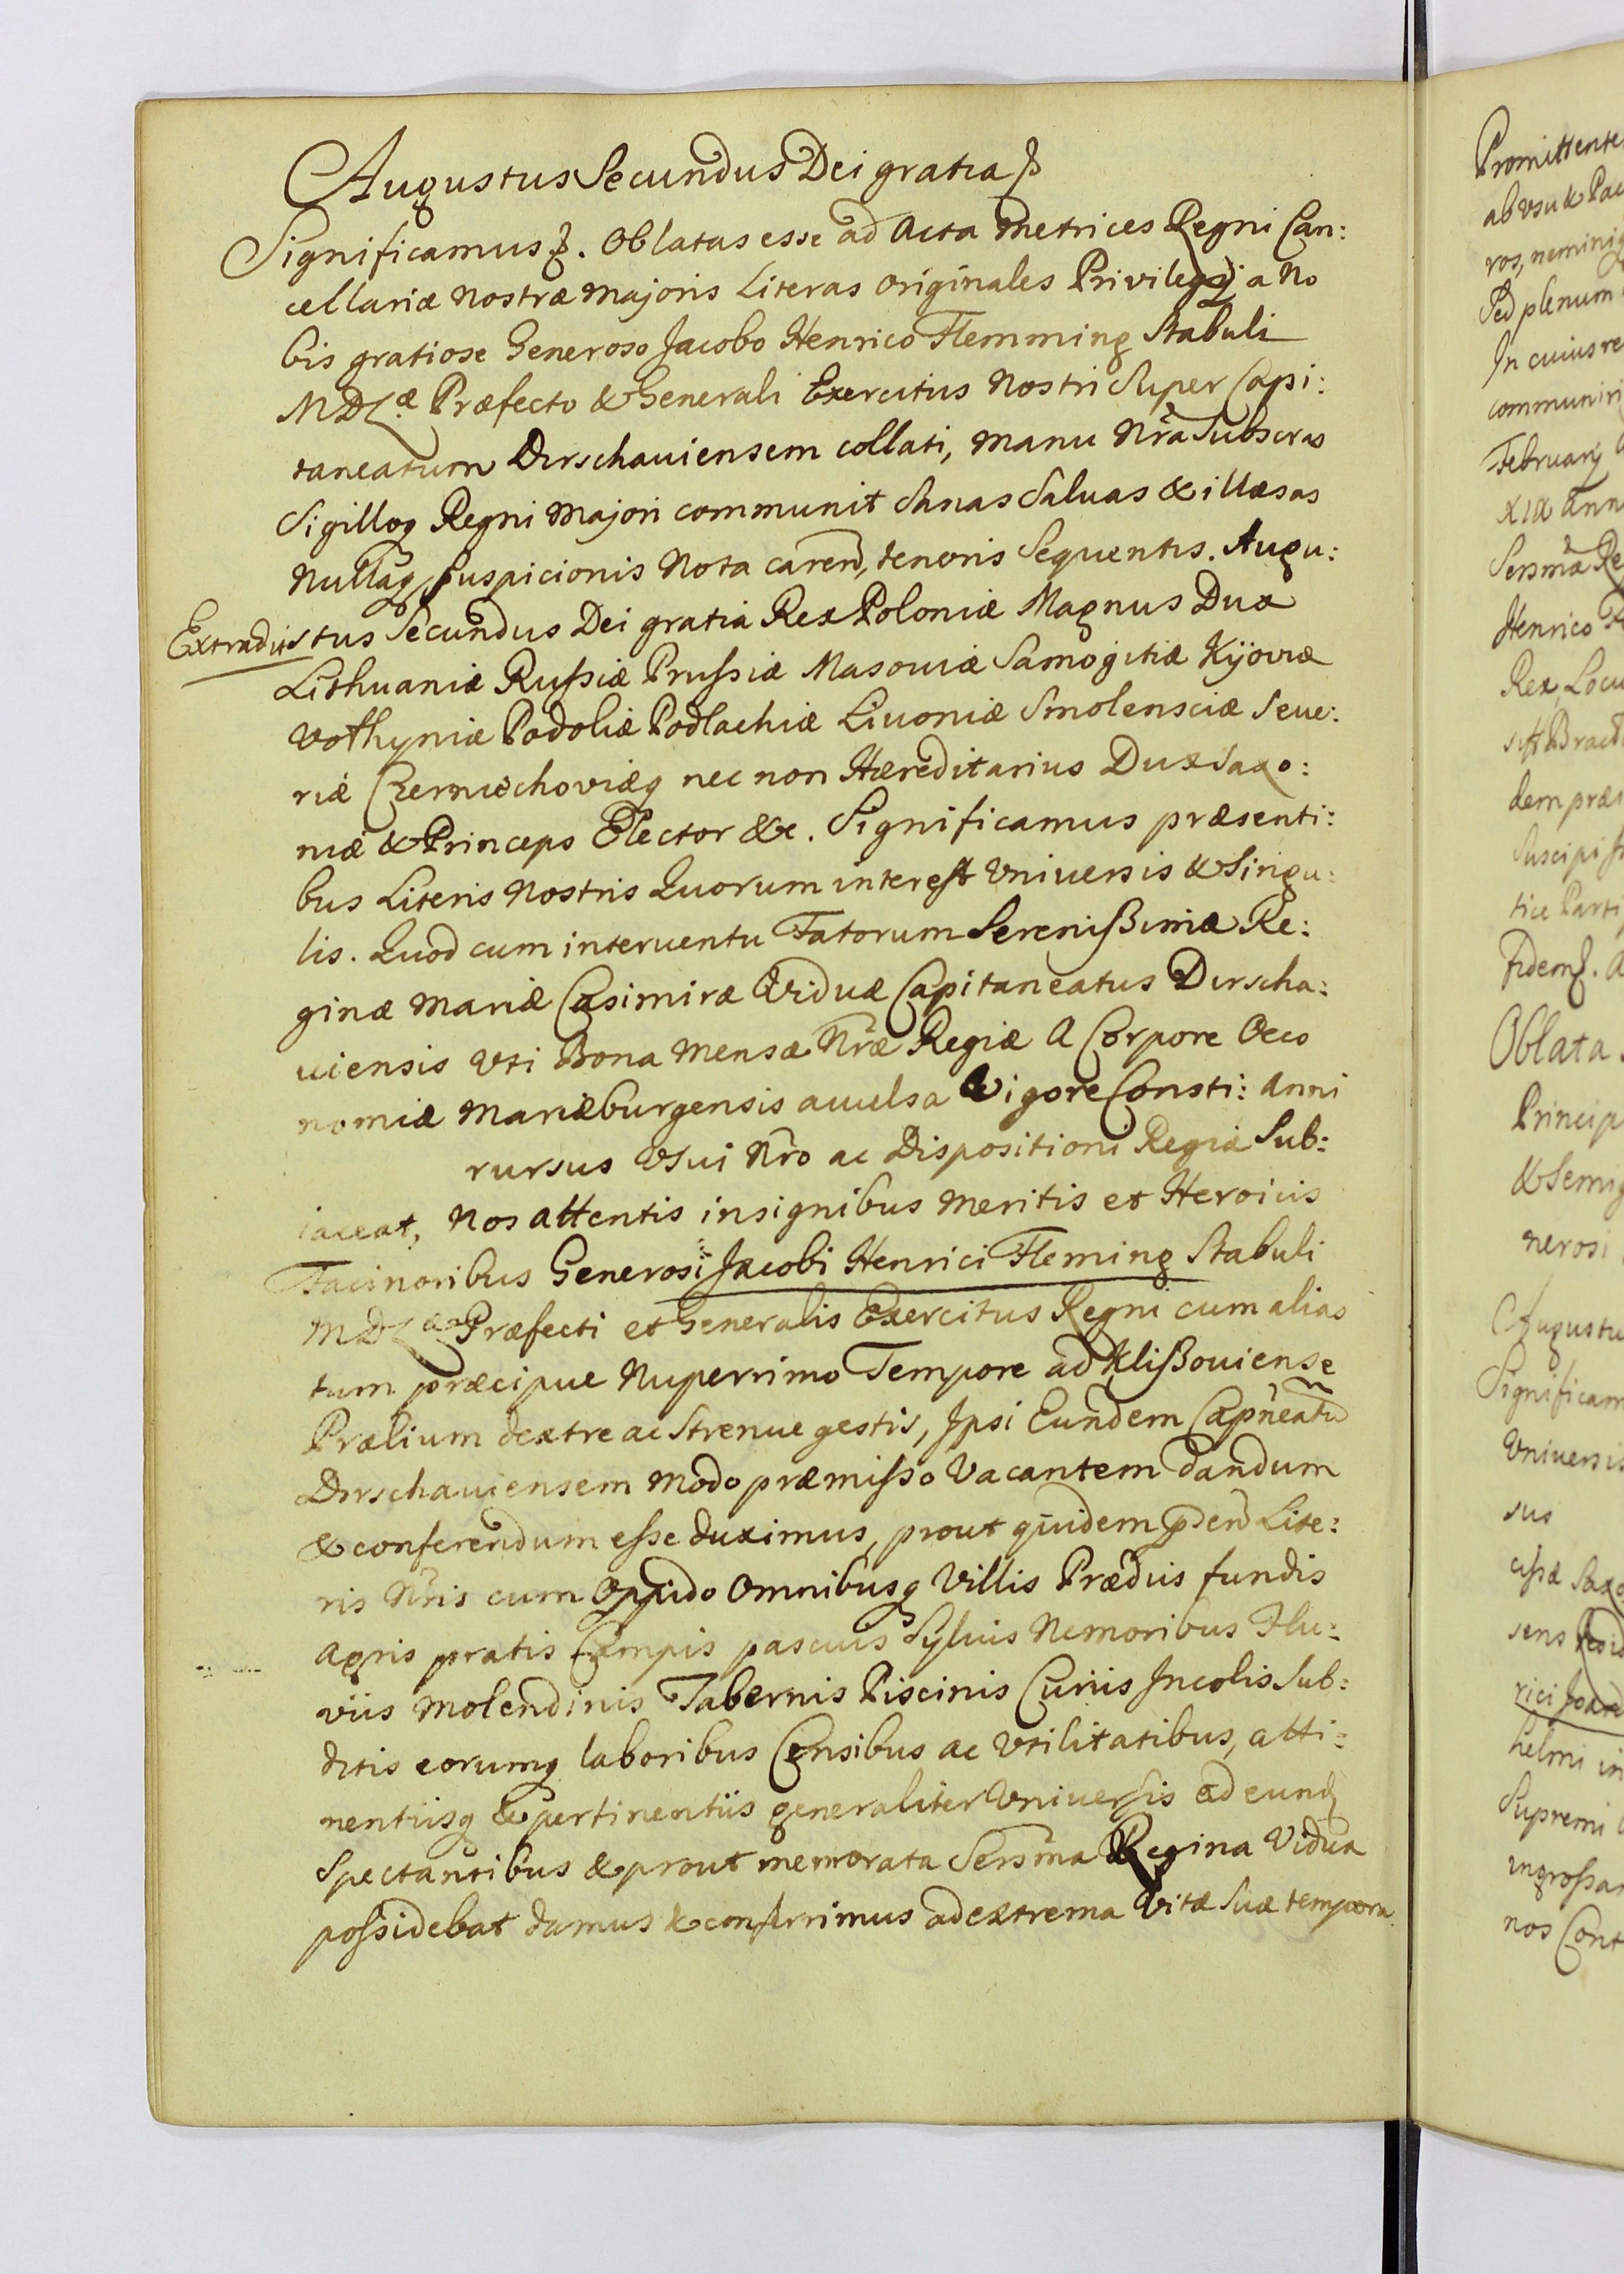 Augustus Secundus Dei gratia
Significamus. Oblatas esse ad Acta Metrices Regni Can:
cellariæ Nostræ Majoris Literas Originales Privilegij a No
bis gratiose Generoso Jacobo Henrico Flemming Stabuli
MDLæ Præfecto & Generali Exercitus Nostri Super Capi:
taneatum Dirschaviensem collati, Manu Nr̃a Subscras
Sigilloq Regni Majori communit Sanas Saluas & illæsas
Nullaq Suspicionis Nota caren, tenoris Sequentis. Augu:
Extradit
stus Secundus Dei gratia Rex Poloniæ Magnus Dux
Lithuaniæ Russiæ Prussiæ Masoviæ Samogitiæ Kijoviæ
Volhyniæ Podoliæ Podlachiæ Livoniæ Smolensciæ Seve:
riæ Czerniechoviæq nec non Hæreditarius Dux Saxo:
niæ & Princeps Elector &c. Significamus præsenti:
bus Literis Nostris Quorum interest Vniuersis & Singu:
lis. Quod cum interuentu Fatorum Serenissimæ Re:
ginæ Mariæ Casimiræ Viduæ Capitaneatus Dirscha:
uiensis Vti Bona Mensæ Nr̃æ Regiæ A Corpore Oeco
nomiæ Mariæburgensis auulsa Vigore Consti: Anni
rursus Vsui Nr̃o ac Dispositioni Regiæ Sub:
iaceat, Nos attentis insignibus Meritis et Heroicis
Facinoribus Generosi Jacobi Henrici Fleming Stabuli
MDLæ Præfecti et Generalis Exercitus Regni cum alias
tum præcipue Nuperrimo Tempore ad Klissouiense
Prælium dextre ac Strenue gestis, Ipsi Eundem Capneatũ
Dirschauiensem Modo præmisso Vacantem dandum
& conferendum esse duximus, prout quidem pñ Lite:
ris Nr̃is cum Oppido Omnibusq Villis Prædiis fundis
Agris pratis Campis pascuis Syluis Nemoribus Flu:
viis Molendinis Tabernis Piscinis Curiis Incolis Sub:
ditis eorumq laboribus Censibus ac Vtilitatibus, atti:
nentiisq & pertinentiis generaliter Vniuersis ad eund
Spectantibus & prout memorata Sersma Regina Vidua
possidebat damus & conferimus ad extrema Vitæ Suæ tempora
Promittente
ab vsu &
ros, nemini
Sed plenum
In cuius re
communiri
February
XIX Ann
Sersmæ Re
Henrico
Rex Locu
dem præs
Suscipi
tiæ Parti
Fidem.
Oblata
Princip
nerosi
Augustu
Significam
Vniuersis
sus
Saxo
sens
helmi in
Supremi
ingrossa
nos Cont